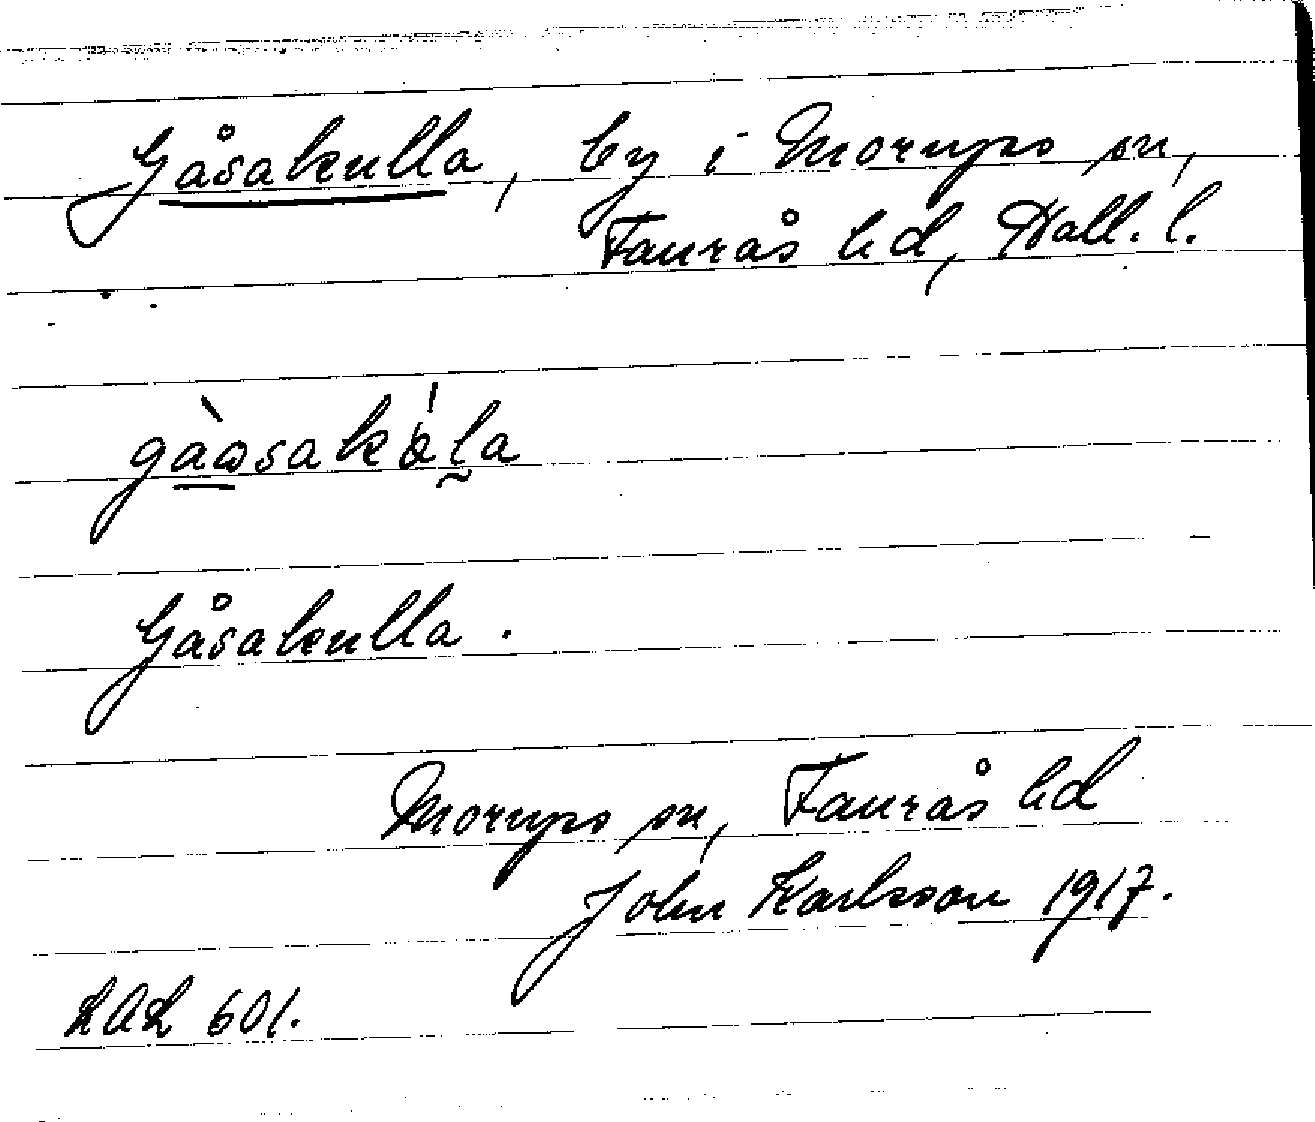 Gåsakulla, by i Morups sn,
Faurås hd, Hall. l.
gàωsakàl̰a
Gåsakulla.
Morups sn, Faurås hd
John Karlsson 1917.
LAL 601.